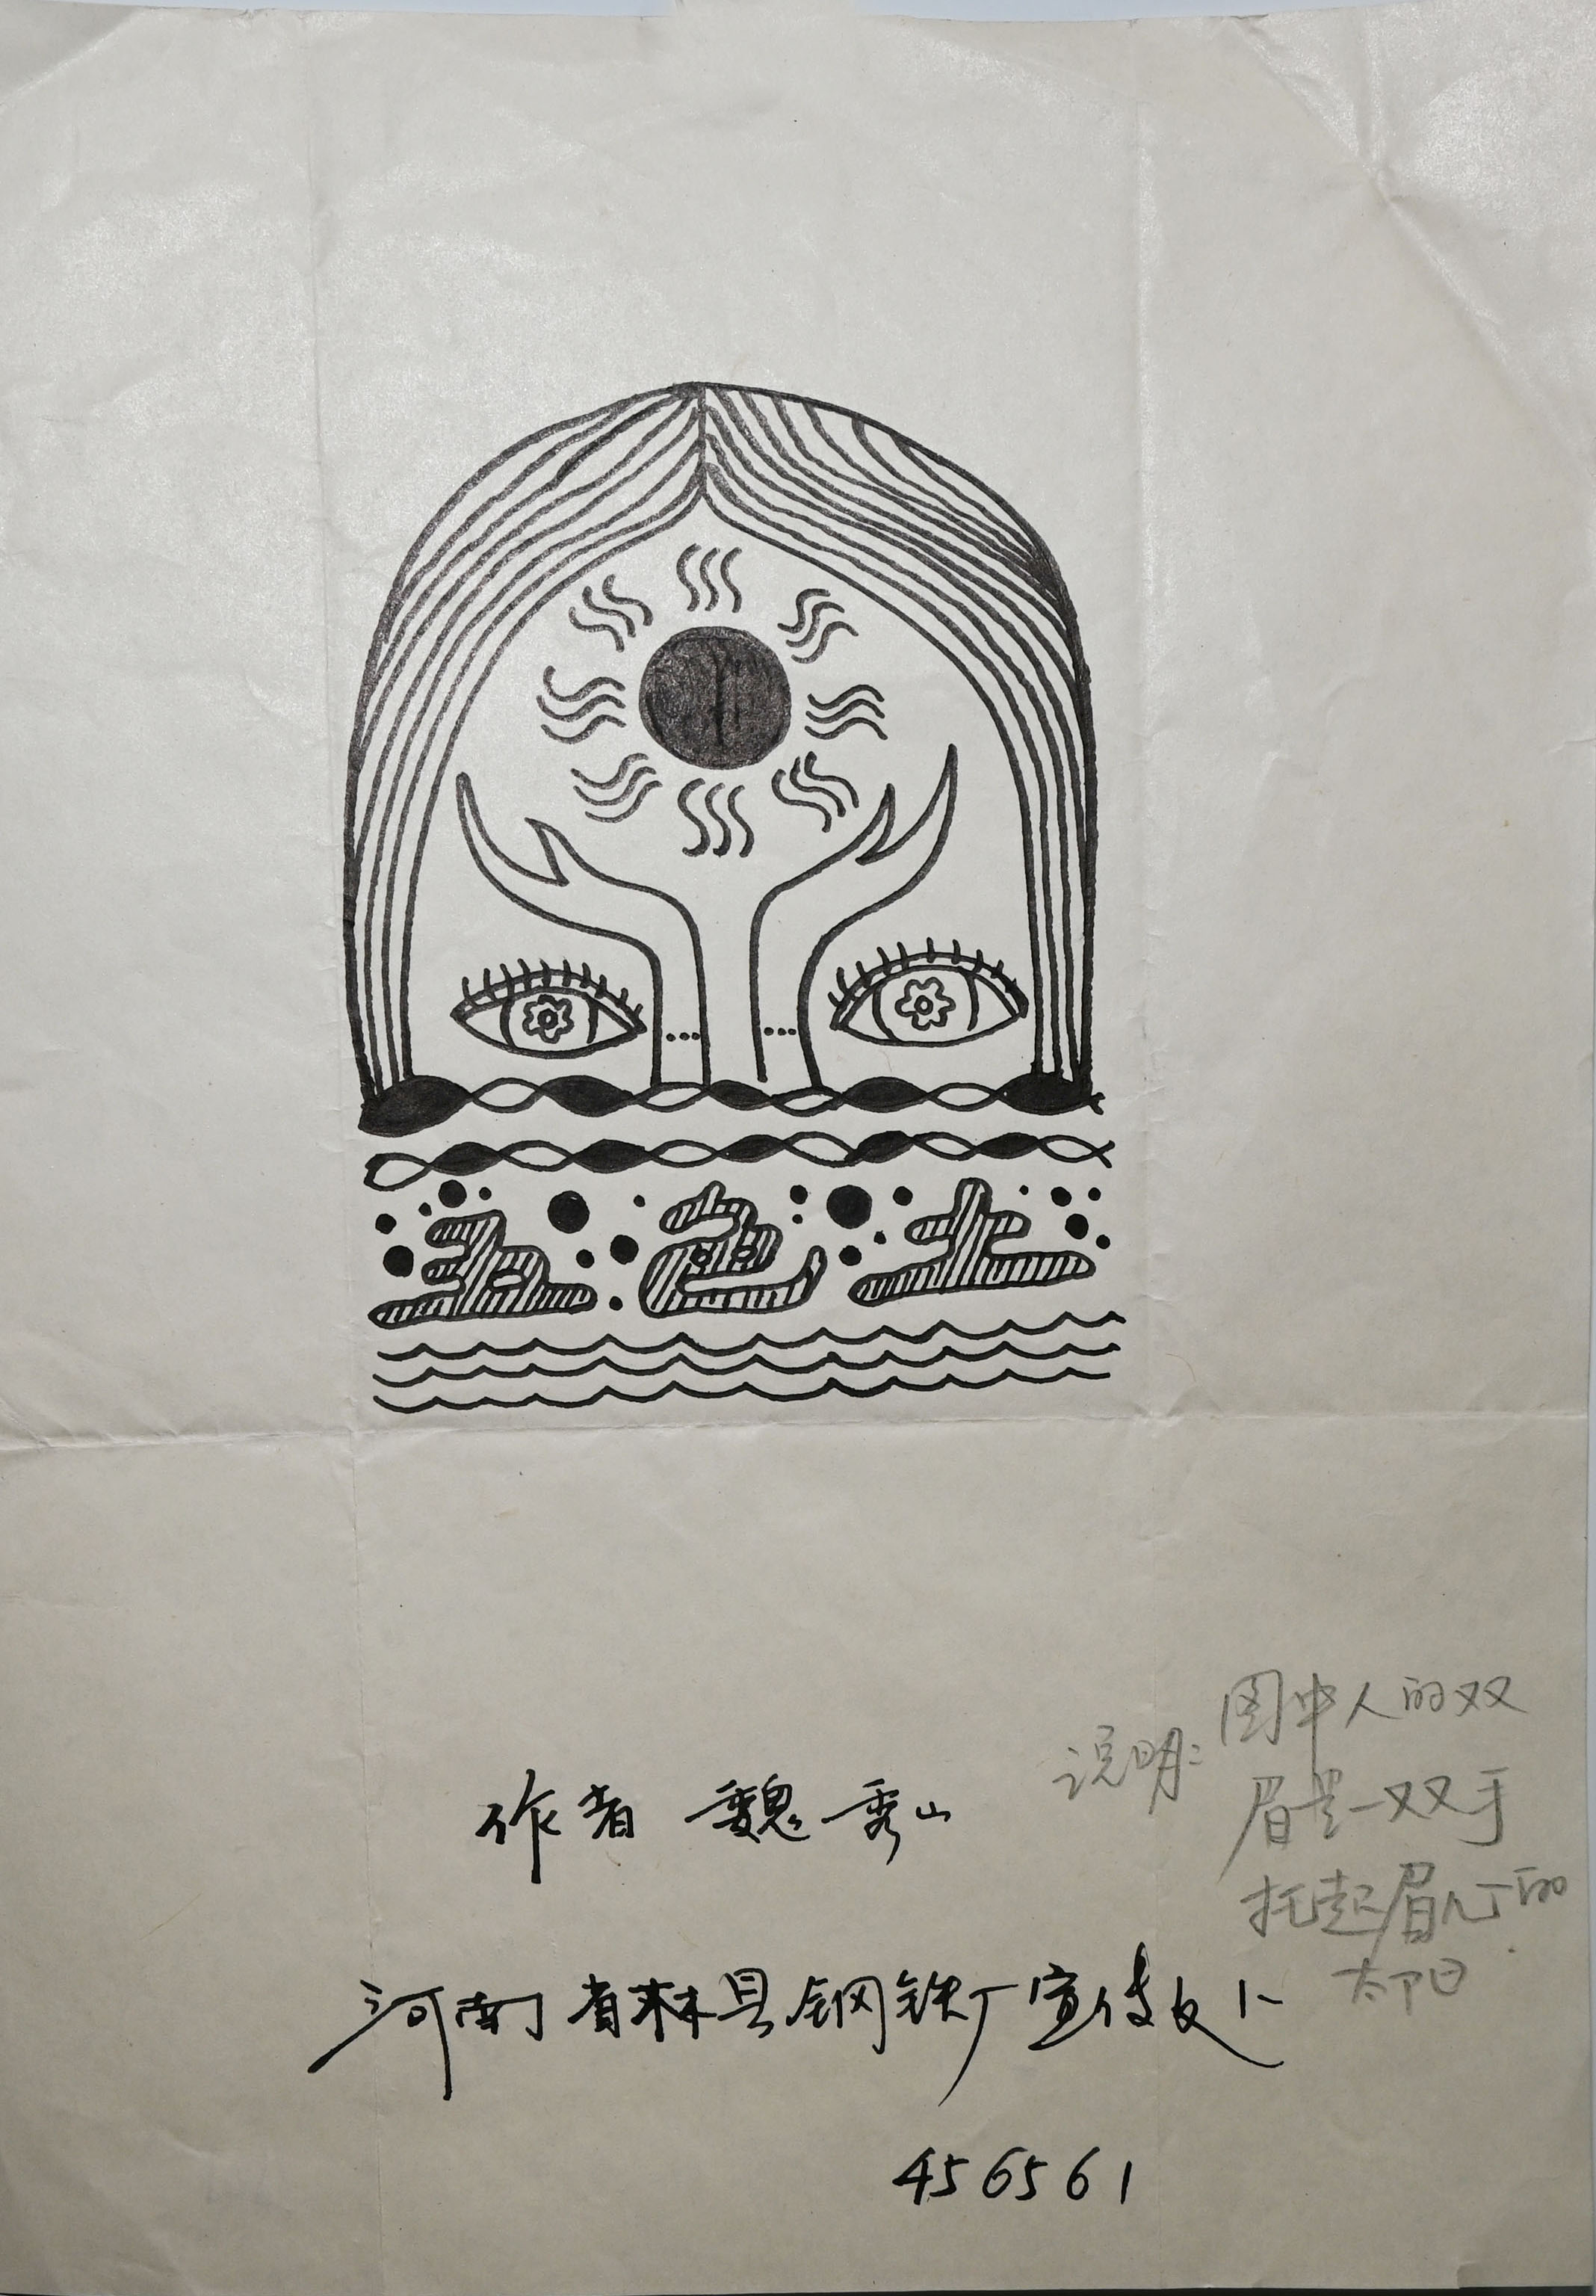 五色土
作者 魏秀山
说明：图中人的双
眉是一双手
托起眉心的
太阳
河南省林县钢铁厂宣传
456561